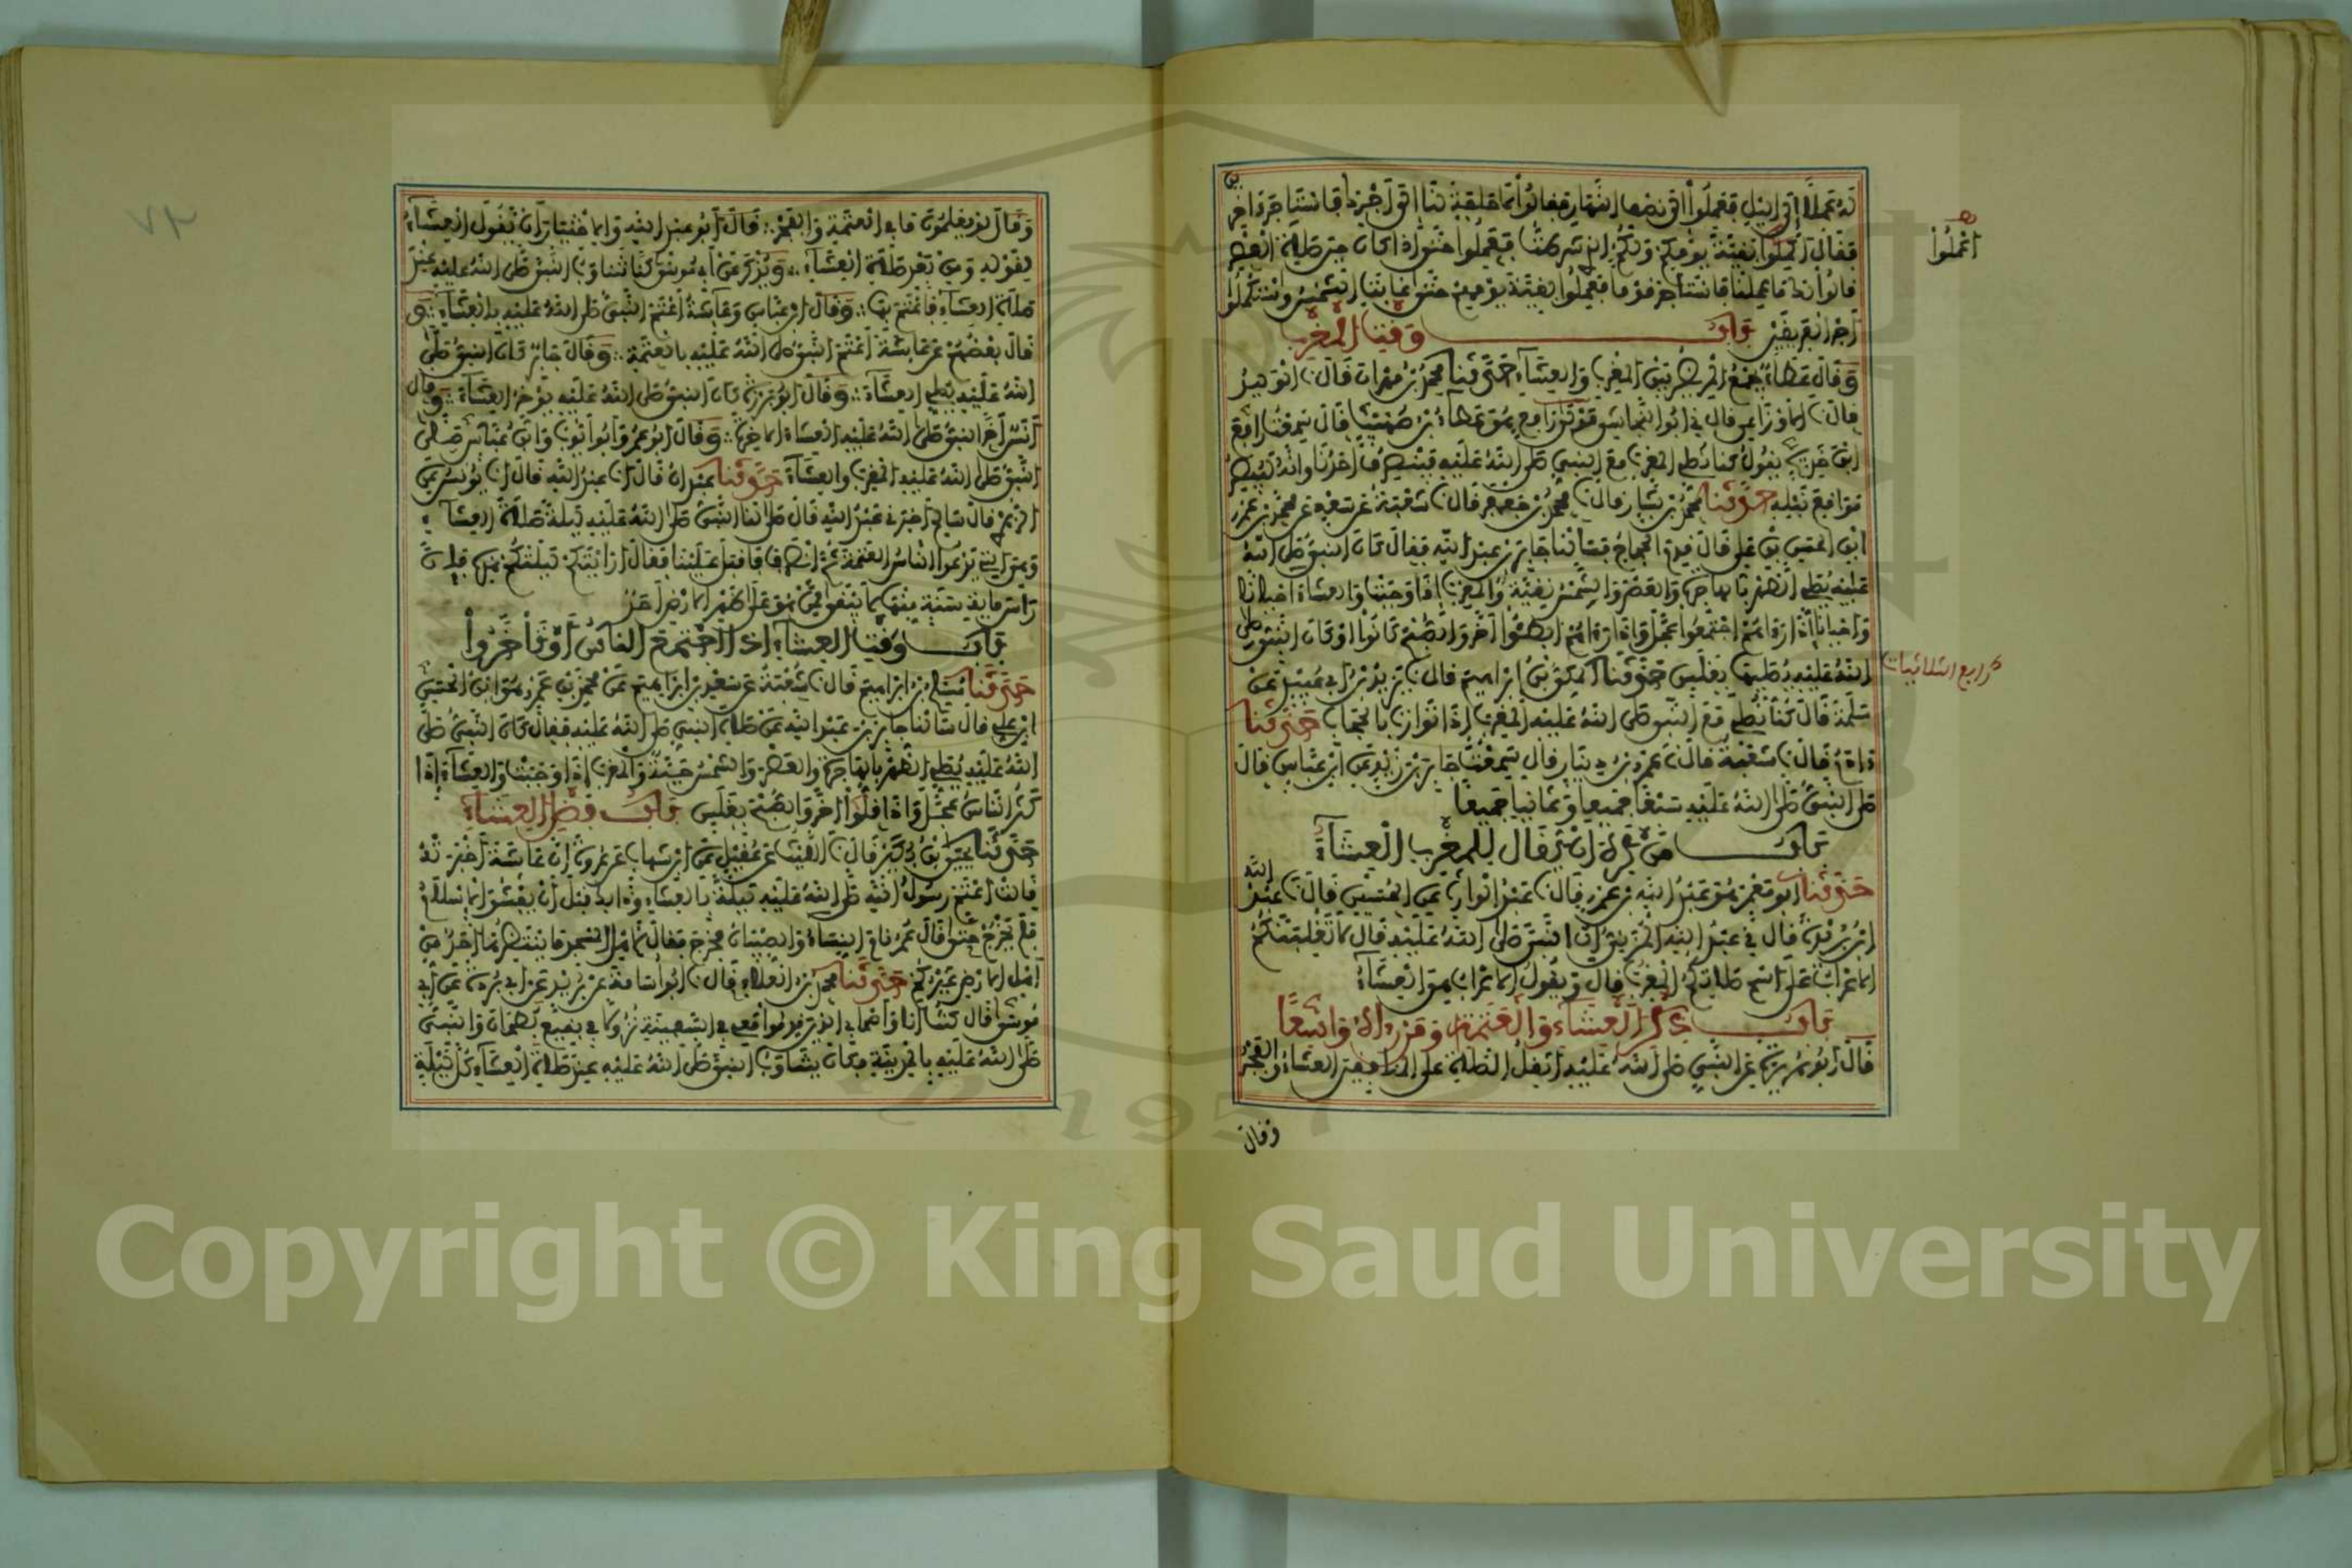 له عملا الى الليل فعملوا الى نصف النهار فقالوا لا حاجة لنا الى اجرك فاستاجر اخرين
فقال اكملوا بقية يومكم ولكم الذي شرطت فعملوا حتى اذا كان حين صلاة العصر
قالوا لك ما عملنا فاستاجر قوما فعملوا بقية يومهم حتى غابت الشمس واستكملوا
اجر الفريقين باب وقت المغرب
وقال عطاء يجمع المريض بين المغرب والعشاء حدثنا محمد بن مهران قال نا الوليد
قال نا الاوزاعي قال نى ابو النجاشي مولى رافع هو عطاء بن صهيب قال سمعت رافع
ابن خديج يقول كنا نصلي المغرب مع النبي صلى الله عليه فينصرف احدنا وانه ليبصر
مواقع نبله حدثنا محمد بن بشار قال نا محمد بن جعفر قال نا شعبة عن سعد عن محمد بن عمرو
ابن الحسن بن علي قال قدم الحجاج فسالنا جابر بن عبد الله فقال كان النبي صلى الله
عليه يصلي الظهر بالهاجرة والعصر والشمس نقية والمغرب اذا وجبت والعشاء احيانا
واحيانا اذا رءاهم اجتمعوا عجل واذا رءاهم ابطئوا اخر والصبح كانوا او كان النبي صلى
الله عليه يصليها بغلس حدثنا المكي بن ابراهيم قال نا يزيد بن ابي عبيد عن
سلمة قال كنا نصلي مع النبي صلى الله عليه المغرب اذا توارت بالحجاب حدثنا
ءادم قال نا شعبة قال نا عمرو بن دينار قال سمعت جابر بن زيد عن ابن عباس قال
صلى النبي صلى الله عليه سبعا جميعا وثمانيا جميعا
باب من كره ان يقال للمغرب العشاء
حدثنا ابو معمر هو عبد الله بن عمرو قال نا عبد الوارث عن الحسين قال نا عبد الله
ابن بريدة قال نى عبد الله المزني ان النبي صلى الله عليه قال لا تغلبنكم
الاعراب على اسم صلاتكم المغرب قال وتقول الاعراب هي العشاء
باب ذكر العشاء والعتمة ومن رءاه واسعا
قال ابو هريرة عن النبي صلى الله عليه اثقل الصلاة على المنافقين العشاء والفجر
وقال
اعملوا
رابع الثلاثيات
وقال لو يعلمون ما في العتمة والفجر قال ابو عبد الله والاختيار ان يقول العشاء
لقوله ومن بعد صلاة العشاء ويذكر عن ابي موسى كنا نتناوب النبي صلى الله عليه عند
صلاة العشاء فاعتم بها وقال ابن عباس وعائشة اعتم النبي صلى الله عليه بالعشاء و
قال بعضهم عن عائشة اعتم النبي صلى الله عليه بالعتمة وقال جابر كان النبي صلى
الله عليه يصلي العشاء وقال ابو برزة كان النبي صلى الله عليه يؤخر العشاء وقال
انس اخر النبي صلى الله عليه العشاء الاخرة وقال ابن عمر وابو ايوب وابن عباس صلى
النبي صلى الله عليه المغرب والعشاء حدثنا عبدان قال انا عبد الله قال انا يونس عن
الزهري قال سالم اخبرني عبد الله قال صلى لنا النبي صلى الله عليه ليلة صلاة العشاء
وهي التي يدعوا الناس العتمة ثم انصرف فاقبل علينا فقال ارايتكم ليلتكم هذه فان
راس مائة سنة منها لا يبقى ممن هو على ظهر الارض احد
باب وقت العشاء اذا اجتمع الناس او تاخروا
حدثنا مسلم بن ابراهيم قال نا شعبة عن سعد بن ابراهيم عن محمد بن عمرو هو ابن الحسن
ابن علي قال سالنا جابر بن عبد الله عن صلاة النبي صلى الله عليه فقال كان النبي صلى
الله عليه يصلي الظهر بالهاجرة والعصر والشمس حية والمغرب اذا وجبت والعشاء اذا
كثر الناس عجل واذا قلوا اخر والصبح بغلس باب فضل العشاء
حدثنا يحيى بن بكير قال نا الليث عن عقيل عن ابن شهاب عن عروة ان عائشة اخبرته
قالت اعتم رسول الله صلى الله عليه ليلة بالعشاء وذلك قبل ان يفشو الاسلام
فلم يخرج حتى قال عمر نام النساء والصبيان فخرج فقال لاهل المسجد ما ينتظرها احد من
اهل الارض غيركم حدثنا محمد بن العلاء قال نا ابو اسامة عن بريد عن ابي بردة عن ابي
موسى قال كنت انا واصحابي الذين قدموا معي في السفينة نزولا في بقيع بطحان والنبي
صلى الله عليه بالمدينة فكان يتناوب النبي صلى الله عليه عند صلاة العشاء كل ليلة